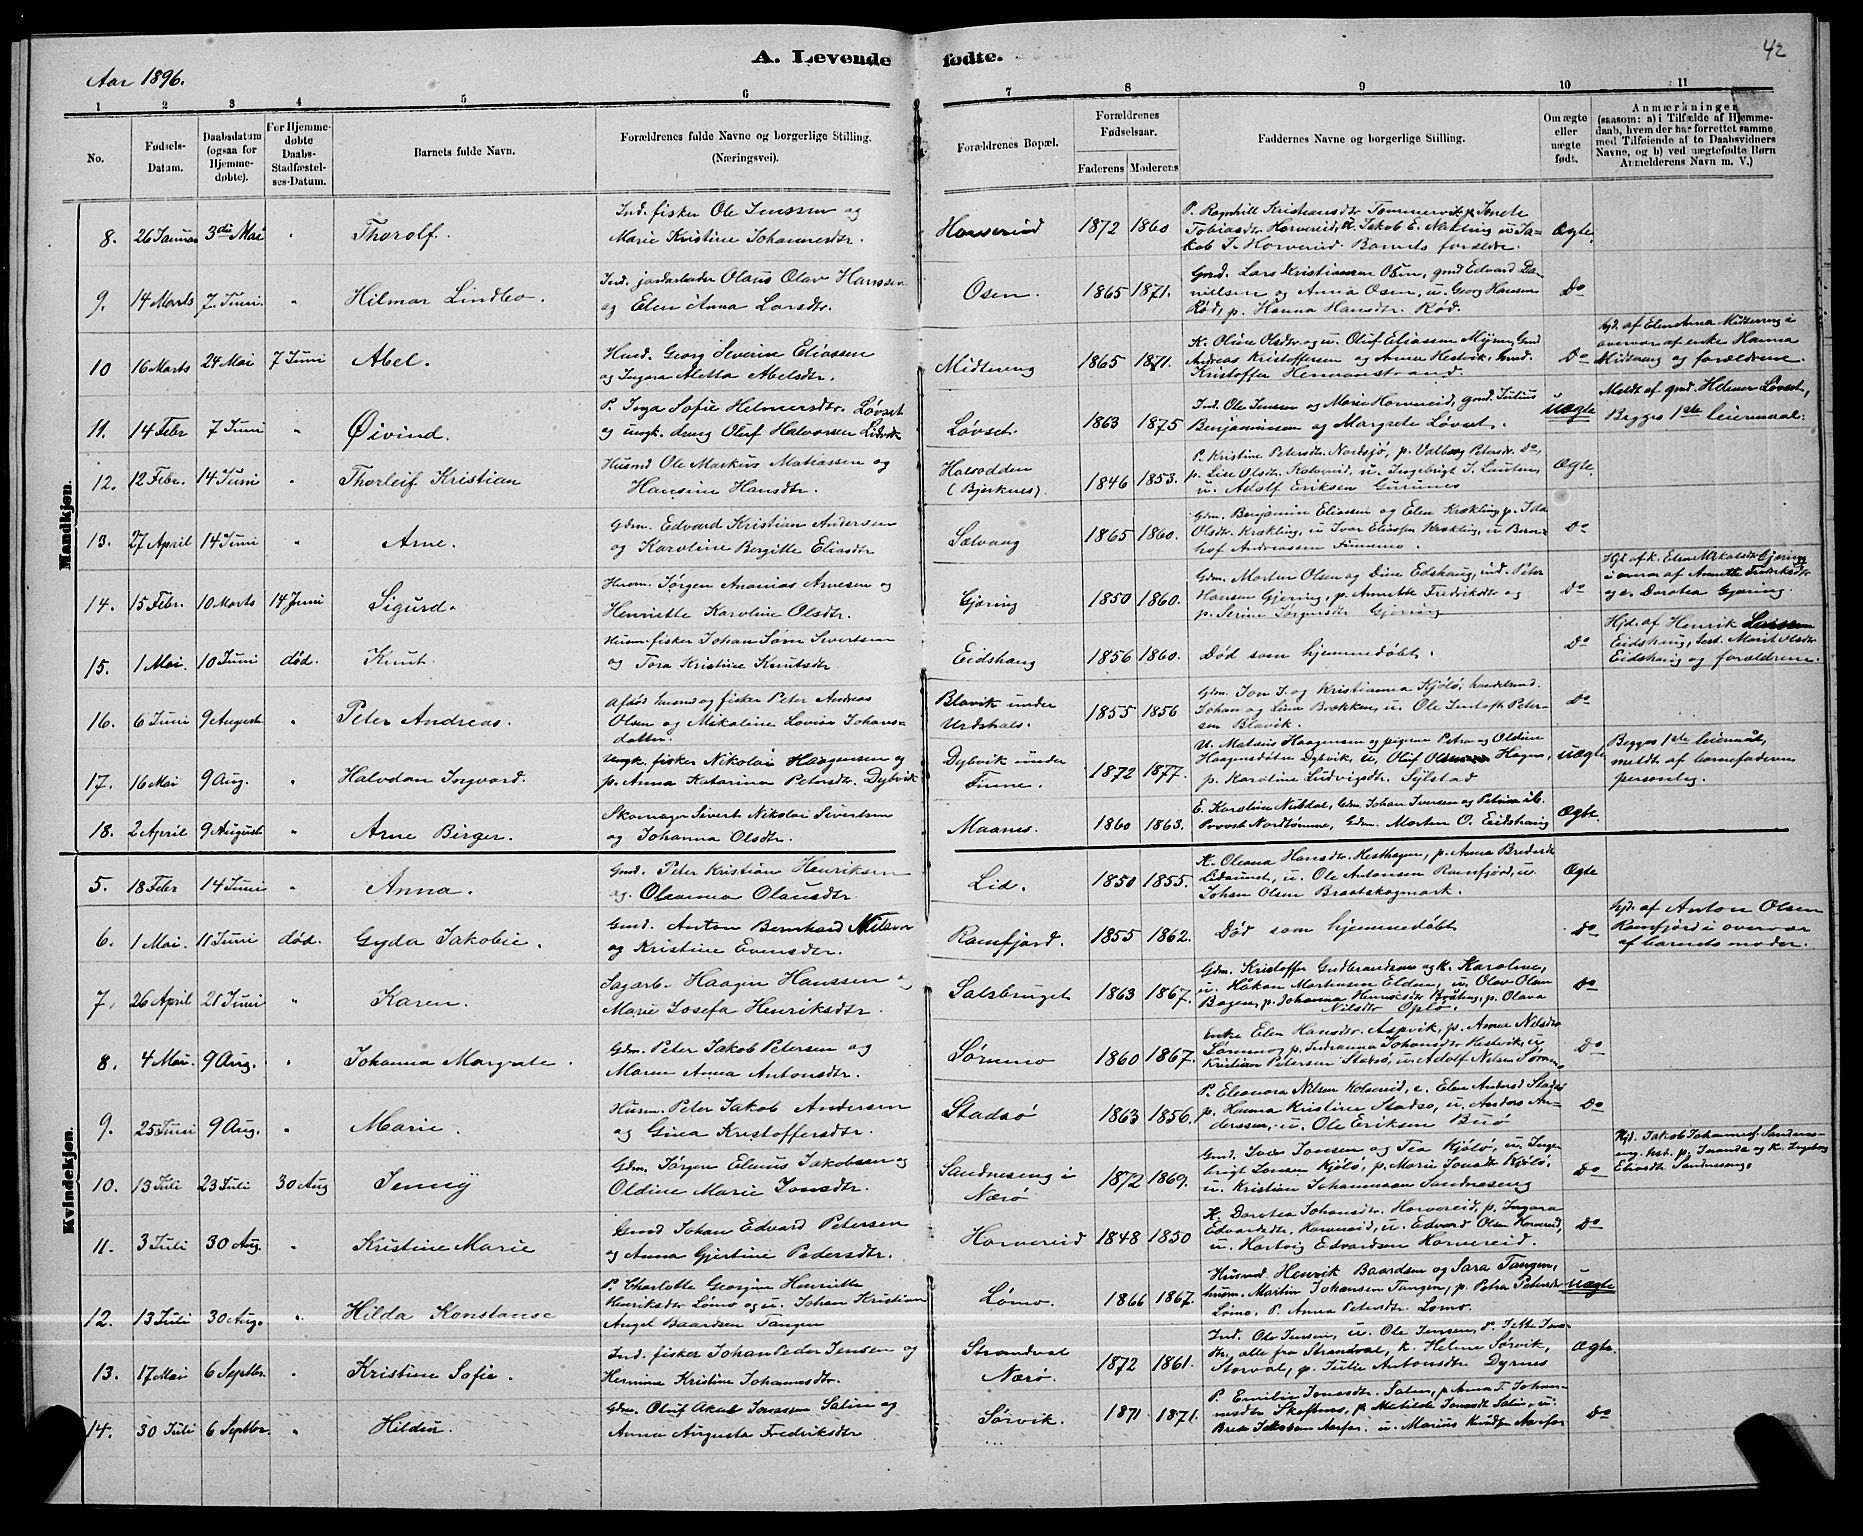 Aar 1896.
A. Levende fødte.
42
1 2 3 4 5 6 7 8 9 10 11
No.
Fødsels-Datum.
Daabsdatum (ogsaa for Hjemmedøbte).
For Hjemmedøbte Daabs-Stadfæstelses-Datum.
Barnets fulde Navn.
Forældrenes fulde Navne og borgerlige Stilling.
(Næringsvei).
Forældrenes Bopæl.
Forældrenes Fødselsaar.
Faderens Moderens
Faddernes Navne og borgerlige Stilling.
Om ægte eller uægte født.
Anmærkninger
(saasom: a) i Tilfælde af Hjemmedaab, hvem der har forrettet samme, med Tilføiende af to Daabsvidners Navne, og b) ved uægtefødte Børn Anmelderens Navn m. V.)
Mandkjøn.
8. 26 Januar 3die Mai " Thorolf. Ind. fisker Ole Jenssen og
Marie Kristine Johannesdtr. Horvereid 1872 1860
P. Ragnhill Kristiansdtr Tømmervik, p. Jonete
Tobiasdtr Horvereid, u. Jakob E. Nakling u. Jakob J. Horvereid. Barnets forældre. Ægte.
9. 14 Marts 7. Juni " Hilmar Lindbo. Ind. jordarbeider Olaus Olav Hanssen
og Elen Anna Larsdtr. Osen. 1865 1871.
Gmd. Lars Kristiansen Osen, gmd Edvard Danielsen og Anna Osen, u. Georg Hansen
Rød, p. Hanna Hansdtr. Rød. Do
10 16 Marts 24 Mai 7 Juni Abel. Husd. Georg Severin Eliassen
og Ingara Aletta Abelsdtr. Midtereng 1865 1871.
K. Oline Olsdtr og u. Oluf Eliassen Myren, Gmd
Andreas Kristoffersen og Anna Hestvik, Gmd.
Kristoffer Hermanstrand. Do
Hjd. af Elen Anna Midtereng i
overvær af enke Hanna
Midtereng og forældrene.
11. 14 Febr 7 Juni " Øivind. P. Inga Sofie Helmersdtr. Løvset
og ungk. dreng Oluf Halvorsen Løvset. 1863 1875
Ind. Ole Jensen og Marie Horvereid, gmd. Julius
Benjaminsen og Margrete Løvset. uægte
Meldt af gmd. Helmer Løvset,
Begges 1ste leiermaal.
12. 12 Febr. 14 Juni " Thorleif Kristian Husmd Ole Markus Matiassen og
Hansine Hansdtr. Halsodden
(Bjerknes). 1846 1853.
P. Kristine Petersdtr. Nordsjø, p. Valborg Petersdtr. Do,
p. Lise Olsdtr. Kolvereid, u. Ingebrigt J.
u. Adolf Eriksen Ægte.
13. 27 April 14 Juni " Arne. Gdm. Edvard Kristian Andersen
og Karoline Bergitte Eliasdtr Sætvaag 1865 1860.
Gdm. Benjamin Eliassen og Elen Krækling, p. Ida
Olsdtr. Krækling, u. Ivar Eliassen Krækling, u. Bernhof Andreassen Finnemo. Do
14. 15 Febr. 10 Marts 14 Juni Sigurd. Husm. Jørgen Ananias Arnesen og
Henriette Karoline Olsdtr. Gjøring 1850 1860.
Gdm. Morten Olsen og Dine Edshaug, ind. Peter
Hansen Gjøring, p. Annette Fredriksdtr og
p. Serine Jørgensdtr Gjøring Do
Hjd. af k. Elen Mikalsdtr Gjøring
i overv. af Annette Fredriksdtr
og e. Dorotea Gjøring.
15. 1 Mai 10 Juni død. Knut. Husm. fisker Johan Sørn Sivertsen
og Tora Kristine Knutsdtr Eidshaug 1856 1860.
Død som hjemmedøbt. Do
Hjd. af Henrik Larssen
Eidshaug, test. Marit Olsdtr
Eidshaug og forældrene.
16. 6 Juni 9 August " Peter Andreas. Afdød husmd og fisker Peter Andreas
Olsen og Mikaline Lovise Johansdatter. Blavik under
Urdshals. 1855 1856
Gdm. Jon J. og Kristianna Kjølø, handelsmd.
Johan og Line Brækken, u. Ole Jentoft Petersen Blavik. Do
17. 16 Mai 9 Aug. " Halvdan Ingvard. Ungk. fisker Nikolai Haagensen og
p. Anna Katarina Petersdtr. Dybvik Dybvik under
Finne. 1872 1877.
U. Matæus Haagensen og pigerne Petra og Oldine
Haagensdøtre Dybvik, u. Oluf Olsen Hagen,
p. Karoline Ludvigsdtr. Sylstad uægte
Begges 1ste leiermaal,
meldt af barnefaderen
personlig.
18. 2 April 9 August " Arne Birger. Skomager Sivert Nikolai Sivertsen
og Johanna Olsdtr. Maanes. 1860 1863.
E. Karoline Nubdal, Gdm. Johan Iversen og Petrina ib.
Provst Nordtømme, Gdm. Morten O. Eidshaug Ægte.
Kvindekjøn.
5. 18 Febr 14 Juni " Anna. Gmd. Peter Kristian Henriksen
og Oleanna Olausdtr. Lid. 1850 1855.
K. Oleana Hansdtr. Hesthagen, p. Anna Bredesdtr
Lidaunet, u. Ole Antonsen Ramfjord, u.
Johan Olsen Braatskogmark. Ægte
6. 1 Mai. 11 Juni død. Gyda Jakobie. Gmd. Anton Bernhard Nilsen
og Kristine Evensdtr. Ramfjord. 1855 1862.
Død som hjemmedøbt Do
Hjd. af Anton Olsen
Ramfjord i overvær
af barnets moder.
7. 26 April 21 Juni " Karen. Sagarb. Haagen Hanssen og
Marie Josefa Henriksdtr. Salsbruget 1863 1867.
Gdm. Kristoffer Gudbrandsen og k. Karoline,
u. Håkan Martinsen Elden, u. Olav Olsen
Bogen, p. Johanna Henriksdtr Bråteng, p. Olava
Nilsdtr Opløi. Do
8. 4 Mai. 9 Aug. " Johanna Margrete. Gdm. Peter Jakob Petersen og
Maren Anna Antonsdtr. Sørmmo 1860 1867.
Enke Elen Hansdtr. Aspvik, p. Anna Nilsdtr
Sørmmo, p. Indianna Johansdtr Hestvik, u.
Kristian Petersen Stadsø, u. Adolf Nilsen Sørm. Do
9. 25 Juni 9 Aug. " Marie. Husm. Peter Jakob Andersen
og Gina Kristoffersdtr. Stadsø 1863 1856.
P. Eleonora Nilsen Kolvereid, e. Elen Andersd Stadsø
p. Hanna Kristine Stadsø, u. Anders Anderssen, u. Ole Eriksen Buø Do
10. 13 Juli 23 Juli 30 Aug Jenny Gdm. Jørgen Elenus Jakobsen og
Oldine Marie Jonsdtr. Sandneseng i
Nærø 1872 1869.
Gmd. Iver Jonsen og Tea Kjølø, u. Ingebrigt Jonsen Kjølø, p. Marie Jonsdtr Kjølø,
u. Kristian Johannesen Sandneseng Do
Hjd. Jakob Johannes. Sandneseng, test. p. Jnanda og K. Ingeborg
Eliasdtr Sandneseng.
11. 3 Juli 30 Aug. " Kristine Marie Gmd Johan Edvard Petersen
og Anna Gjertine Pedersdtr. Horvereid 1848 1850
K. Dorotea Johansdtr. Horvereid, p. Ingara
Edvardsdtr. Horvereid, u. Edvard Olsen Horvereid,
u. Hartvig Edvardsen Horvereid. Do
12. 13 Juli 30 Aug. " Hilda Konstanse P. Charlotte Georgine Henriette
Henriksdtr Lømo og u. Johan Kristian
Angel Baardsen Tangen Lømo. 1866 1867.
Husmd. Henrik Baardsen og Sara Tangen,
husm. Martin Johansen Tangen, p. Petra Petersdtr
Lømo, P. Anna Petersdtr. Lømo. uægte
13. 17 Mai 6 Septbr. " Kristine Sofie. Ind. fisker Johan Peder Jensen og
Hermine Kristine Johannesdtr. Strandval
Nærø. 1872 1861.
Ind. Ole Jensen, u. Ole Jensen, P. Jette Jonsdtr, alle fra Strandval, k. Helene Sørvik,
Storval, p. Julie Antonsdtr Dyrnes Ægte
14. 30 Juli 6 Septbr. " Hildur Gdm. Oluf Akab Jonassen Salin og
Anna Augusta Fredriksdtr Sørvik. 1871. 1871.
P. Emilie Jonasdtr. Salen, p. Anna F. Johannesdtr Skoftnes, p. Matilde Jonasdt Salen, u.
Brede Jakobsen Aarfor, u. Marius Knudsen Aarfor Do